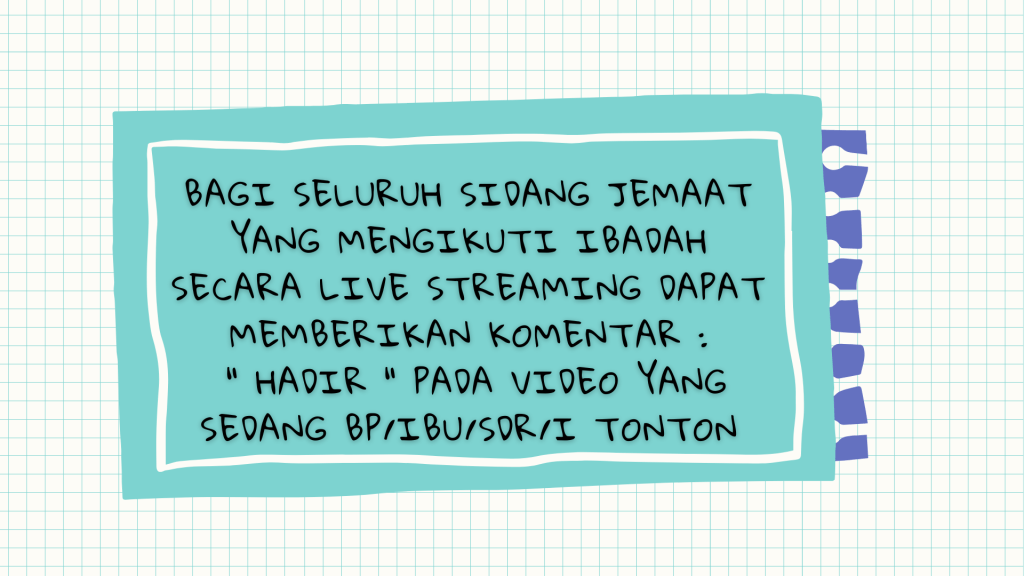 BAGI SELURUH SIDANG JEMAAT
YANG MENGIKUTI IBADAH
SECARA LIVE STREAMING DAPAT
MEMBERIKAN KOMENTAR :
" HADIR " PADA VIDEO YANG
SEDANG BP/IBU/SDR/I TONTON